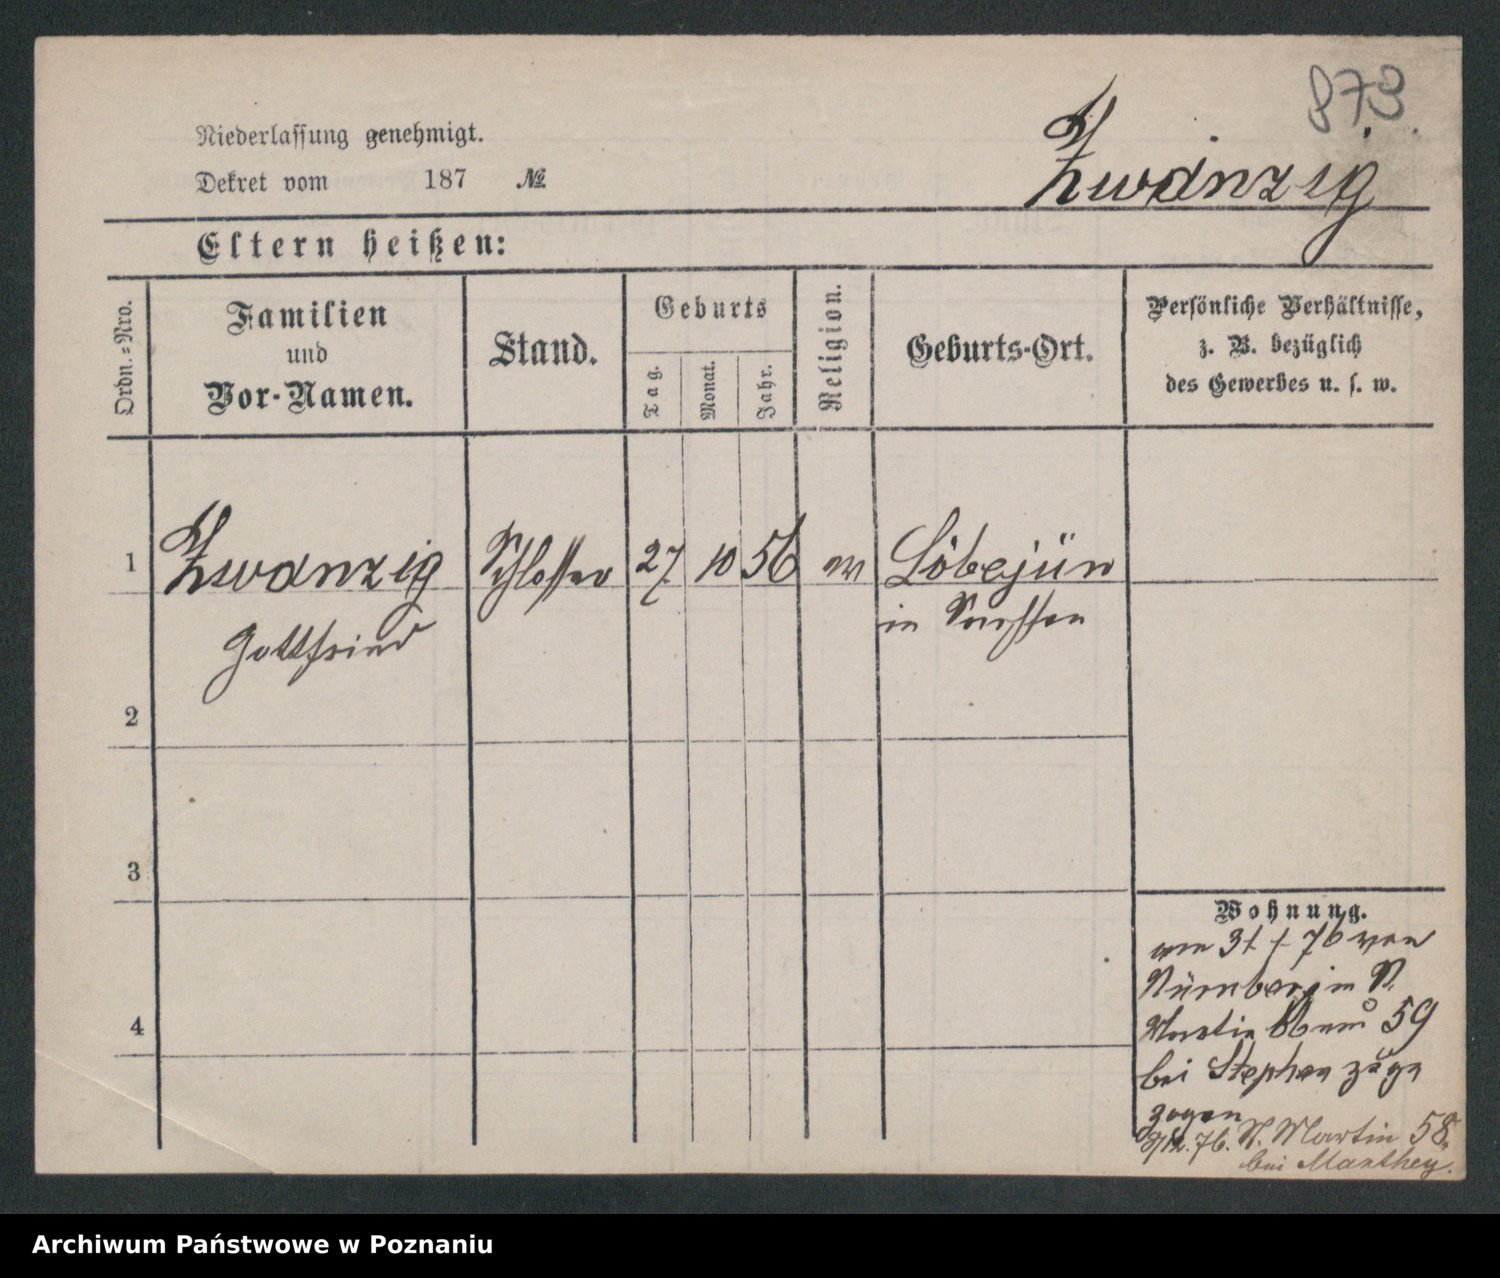 873.
Niederlassung genehmigt.
Dekret vom 187 №
Zwanzig
Eltern heißen:
Ordn.=Nro.
Familien
und
Vor-Namen.
Stand.
Geburts
Tag.
Monat.
Jahr.
Religion.
Geburts-Ort.
Persönliche Verhältnisse,
z. B. bezüglich
des Gewerbes u. s. w.
1 Zwanzig Schlosser 27 10 56 ev Löbejün
Gottfried in Preussen
2
3
4
Wohnung.
am 31 76 von
Nürnberg in St.
Martin 59
bei Stephan zuge
zogen
76. St. Martin 58.
bei Manthey.
Archiwum Państwowe w Poznaniu